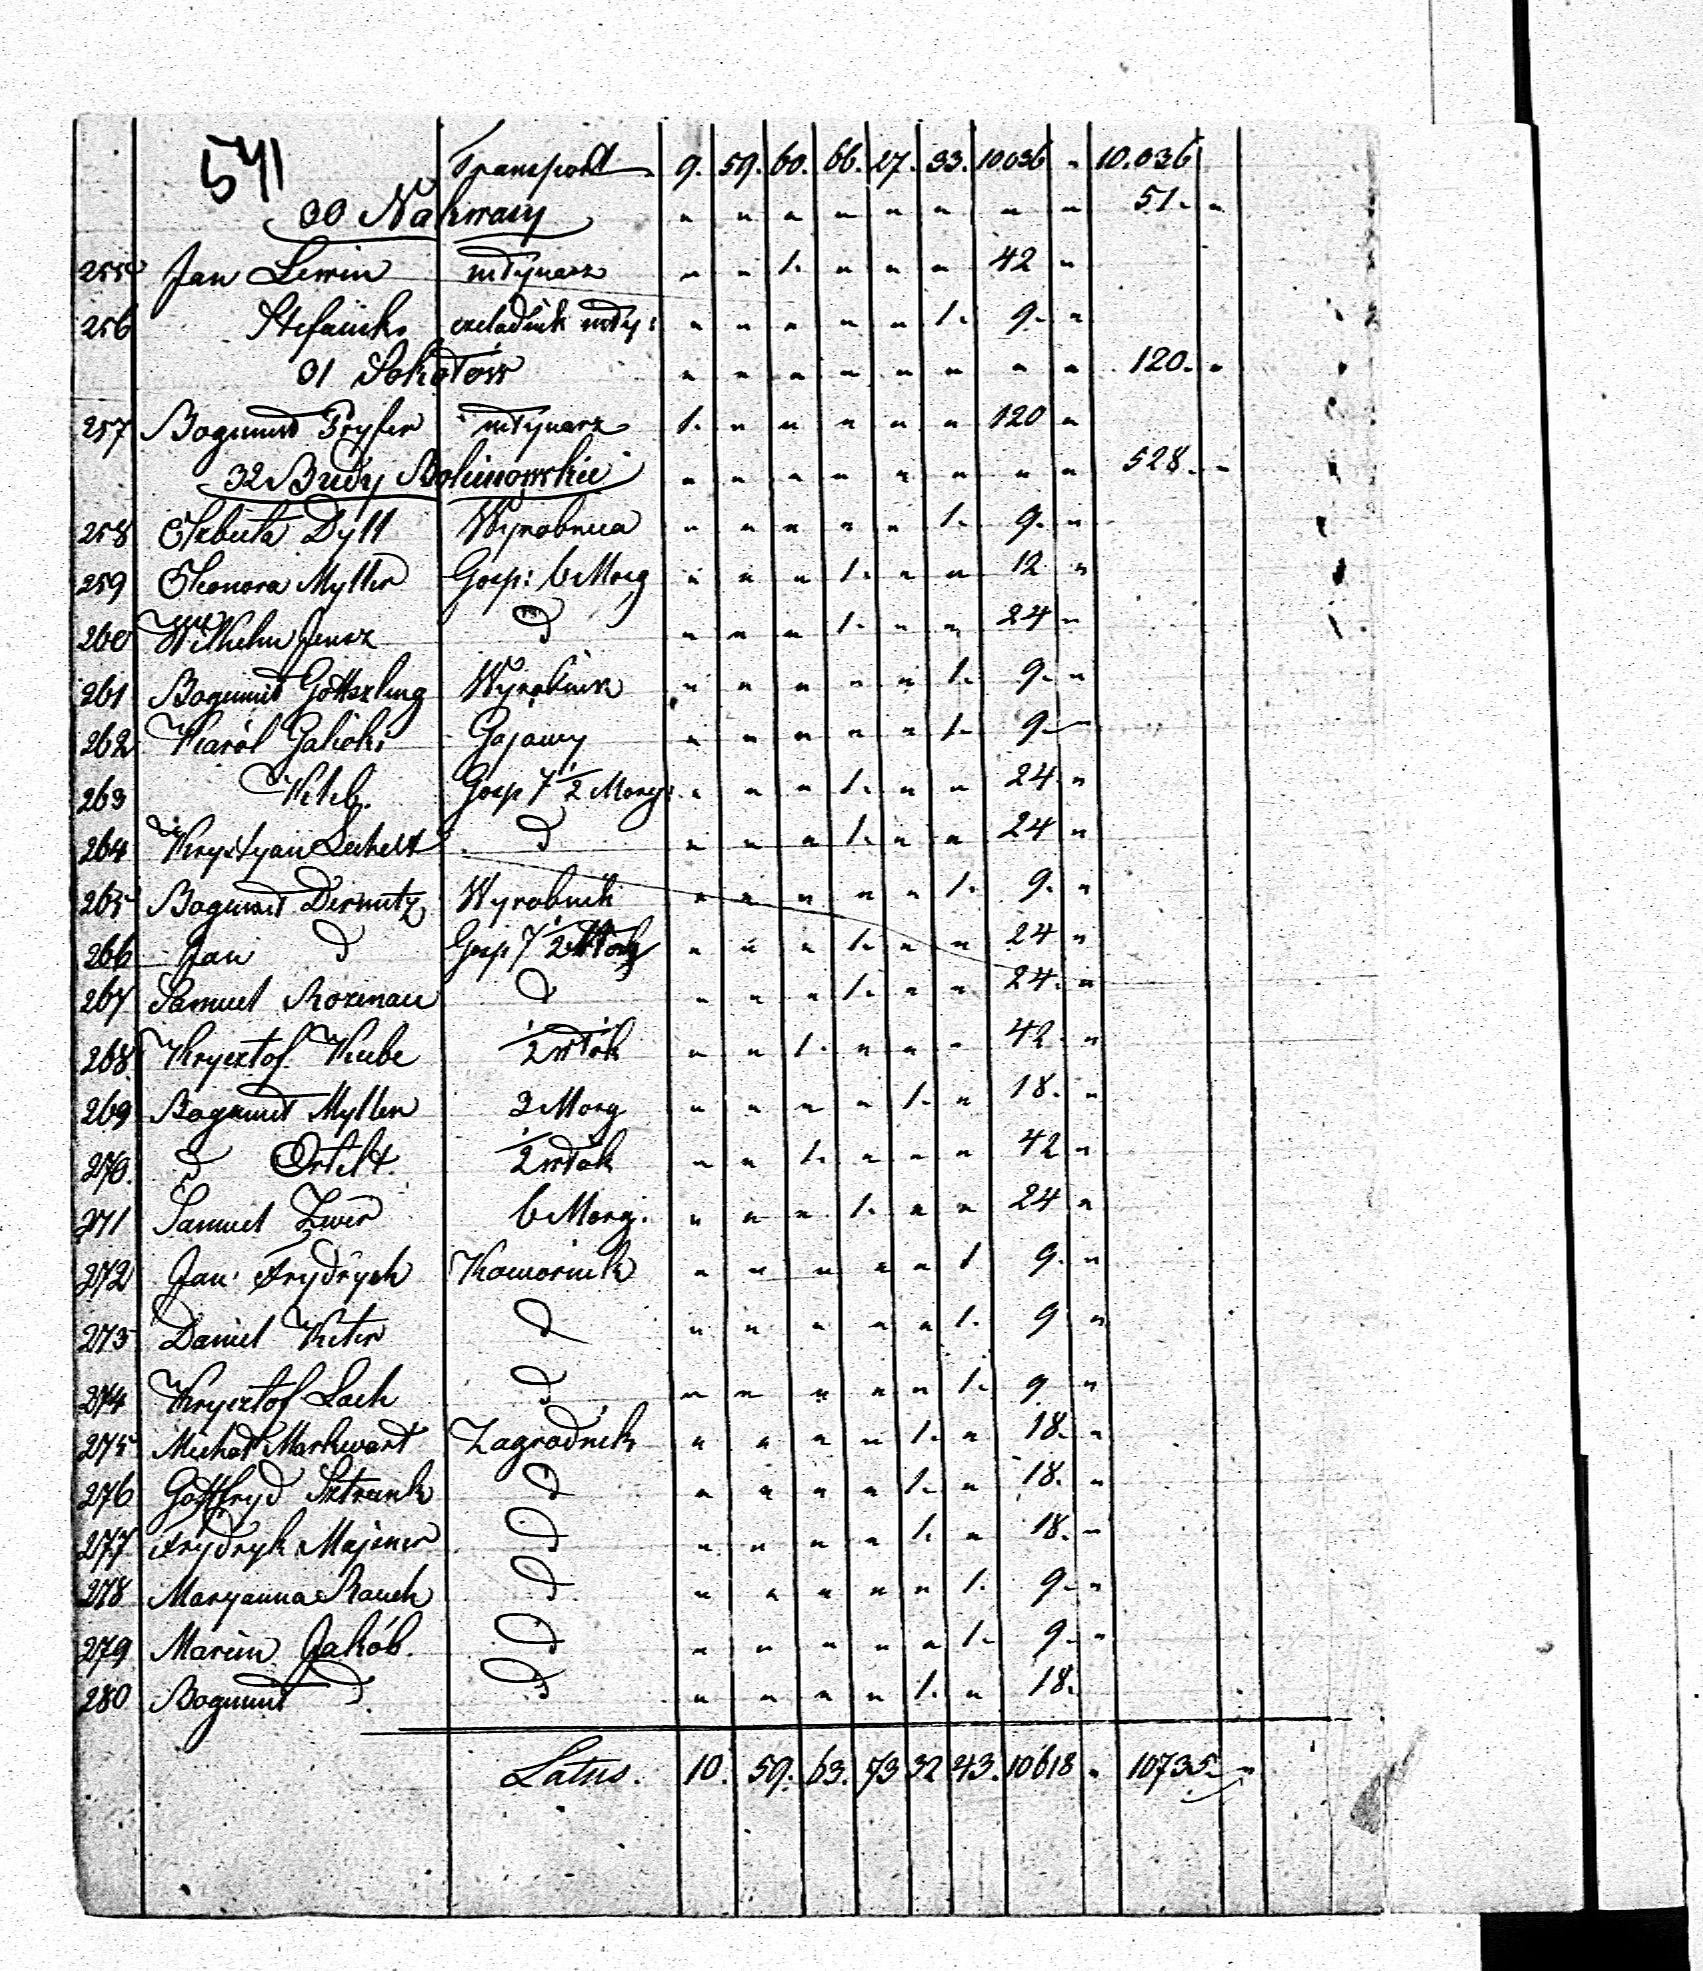 541 Transport 9. 59. 60. 66. 27. 33. 10036 " 10.036
30 Nakwasy " " " " " " " " 51. "
255 Jan Lewin młynarz " " 1. " " " 42 "
256 Stefański czeladnik mły: " " " " " 1. 9. "
31 Sokołów " " " " " " " " 120. "
257 Bogumił Fryfer młynarz 1. " " " " " 120 "
32 Budy Bolimowskie " " " " " " " " 528. "
258 Elżbieta Dyll Wyrobnica " " " " " 1. 9. "
259 Eleonora Myller Gosp: 6 Morg " " " 1. " " 12 "
260 Wilhelm Jensz d " " " 1. " " 24 "
261 Bogumił Gottszling Wyrobnik " " " " " 1. 9. "
262 Karól Galicki Gajowy " " " " " 1. 9. "
263 Kelb. Gosp 7 1/2 Morg: " " " 1. " " 24. "
264 Krystyan Lechelt d " " " 1. " " 24 "
265 Bogumił Diernitz Wyrobnik " " " " " 1. 9. "
266 Jan d Gosp 7 1/2 Morg " " " 1. " " 24 "
267 Samuel Rozenau d " " " 1. " " 24. "
268 Krysztof Kube 1/2 włók " " 1. " " " 42. "
269 Bogumił Myller 3 Morg " " " " 1. " 18. "
270. d Ortelt. 1/2 włók " " 1. " " " 42 "
271 Samuel Zwer 6 Morg. " " " 1. " " 24 "
272 Jan Frydrych Komornik " " " " " 1 9. "
273 Daniel Keter d " " " " " 1. 9 "
274 Krysztof Lach d " " " " " 1. 9 "
275 Michał Markwart Zagrodnik " " " " 1. " 18. "
276 Gottfryd Sztrank d " " " " 1. " 18. "
277 Frydryk Majsner d " " " " 1. " 18. "
278 Maryanna Rauch d " " " " " 1. 9. "
279 Marcin Jakób. d " " " " " 1. 9. "
280 Bogumił d. d " " " " 1. " 18.
Latus. 10. 59. 63. 73 32 43. 10618 " 10735. "